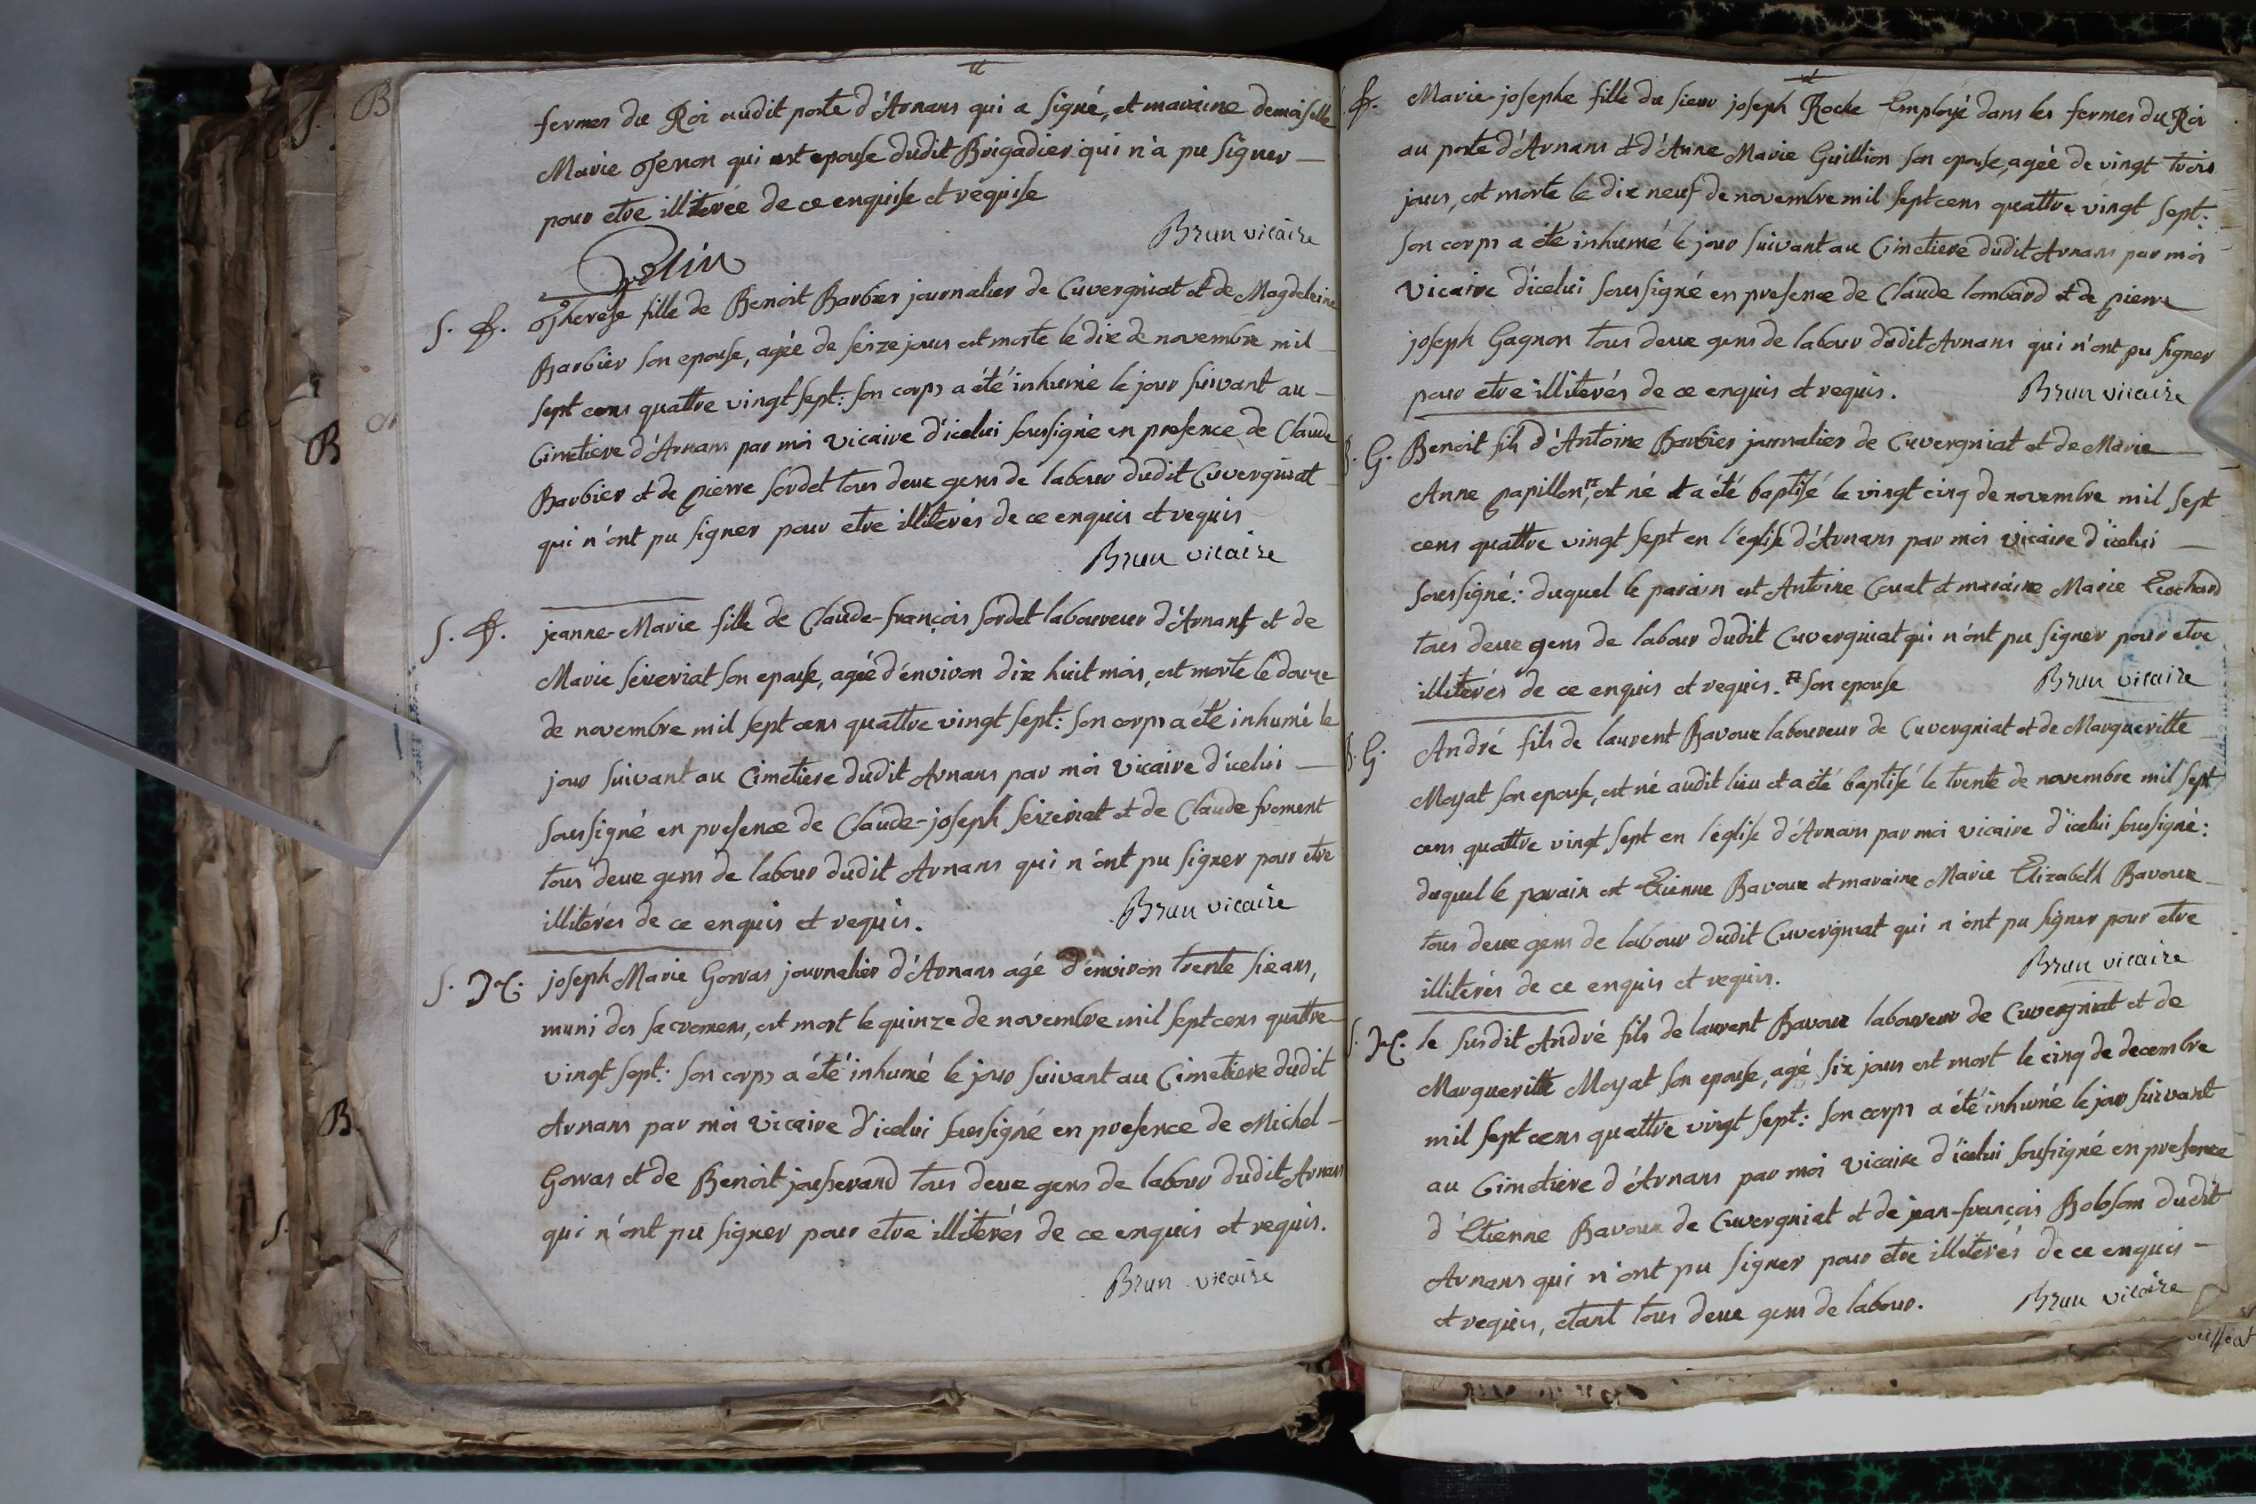 fermes du Roi audit poste d'Arnans qui a signé, et maraine demoiselle
Marie Thenon qui est epouse dudit Brigadier qui n'a pu signer
pour etre illiterée de ce enquise et requise
Brun vicaire
S. F. Therese fille de Benoit Barbier journalier de Cuvergniat et de Magdeleine
Barbier son epouse, agée de seize jours est morte le dix de novembre mil
sept cens quattre vingt sept: son corps a été inhumé le jour suivant au
Cimetiere d'Arnans par moi vicaire d'icelui soussigné en presence de Claude
Barbier et de pierre sordet tous deux gens de labour dudit Cuvergniat
qui n'ont pu signer pour etre illiterés de ce enquis et requis
Brun vicaire
S. F. jeanne-Marie fille de Claude-françois sordet laboureur d'Arnans et de
Marie séveriat son epouse, agée d'environ dix huit mois, est morte le douze
de novembre mil sept cens quattre vingt sept: son corps a été inhumé le
jour suivant au Cimetiere dudit Arnans par moi vicaire d'icelui
soussigné en presence de Claude-joseph seizeriat et de Claude froment
tous deux gens de labour dudit Arnans qui n'ont pu signer pour etre
illiterés de ce enquis et requis.
Brun vicaire
S. joseph Marie Gorras journalier d'Arnans agé d'environ trente six ans,
muni des sacremens, est mort le quinze de novembre mil sept cens quattre
vingt sept: son corps a été inhumé le jour suivant au Cimetiere dudit
Arnans par moi vicaire d'icelui soussigné en presence de Michel
Gorras et de Benoit jousserand tous deux gens de labour dudit Arnans
qui n'ont pu signer pour etre illiterés de ce enquis et requis.
Brun vicaire
F. Marie-josephe fille du sieur joseph Roche Employé dans les fermes du Roi
au poste d'Arnans et d'Anne Marie Guillion son epouse, agée de vingt trois
jours, est morte le dix neuf de novembre mil sept cens quattre vingt sept:
son corps a été inhumé le jour suivant au Cimetiere dudit Arnans par moi
vicaire d'icelui soussigné en presence de Claude lombard et de pierre
joseph Gagnon tous deux gens de labour dudit Arnans qui n'ont pu signer
pour etre illiterés de ce enquis et requis.
Brun vicaire
B. G. Benoit fils d'Antoine Barbier journalier de Cuvergniat et de Marie
Anne papillon, est né et a été baptisé le vingt cinq de novembre mil sept
cens quattre vingt sept en l'eglise d'Arnans par moi vicaire d'icelui
soussigné: duquel le parain est Antoine Couat et maraine Marie Ecochard
tous deux gens de labour dudit Cuvergniat qui n'ont pu signer pour etre
illiterés de ce enquis et requis. son epouse
Brun vicaire
B. G. André fils de laurent Bavoux laboureur de Cuvergniat et de Margueritte
Moyat son epouse, est né audit lieu et a été baptisé le trente de novembre mil sept
cens quattre vingt sept en l'église d'Arnans par moi vicaire d'icelui soussigné:
duquel le parain est Etienne Bavoux et maraine Marie Elizabeth Bavoux
tous deux gens de labour dudit Cuvergniat qui n'ont pu signer pour etre
illiterés de ce enquis et requis.
Brun vicaire
le susdit André fils de laurent Bavoux laboureur de Cuvergniat et de
Margueritte Moyat son epouse, agé six jours est mort le cinq de decembre
mil sept cens quattre vingt sept: son corps a été inhumé le jour suivant
au Cimetiere d'Arnans par moi vicaire d'icelui soussigné en presence
d'Etienne Bavoux de Cuvergniat et de jean-françois Bolosom dudit
Arnans qui n'ont pu signer pour etre illiterés de ce enquis
et requis, etant tous deux gens de labour.
Brun vicaire